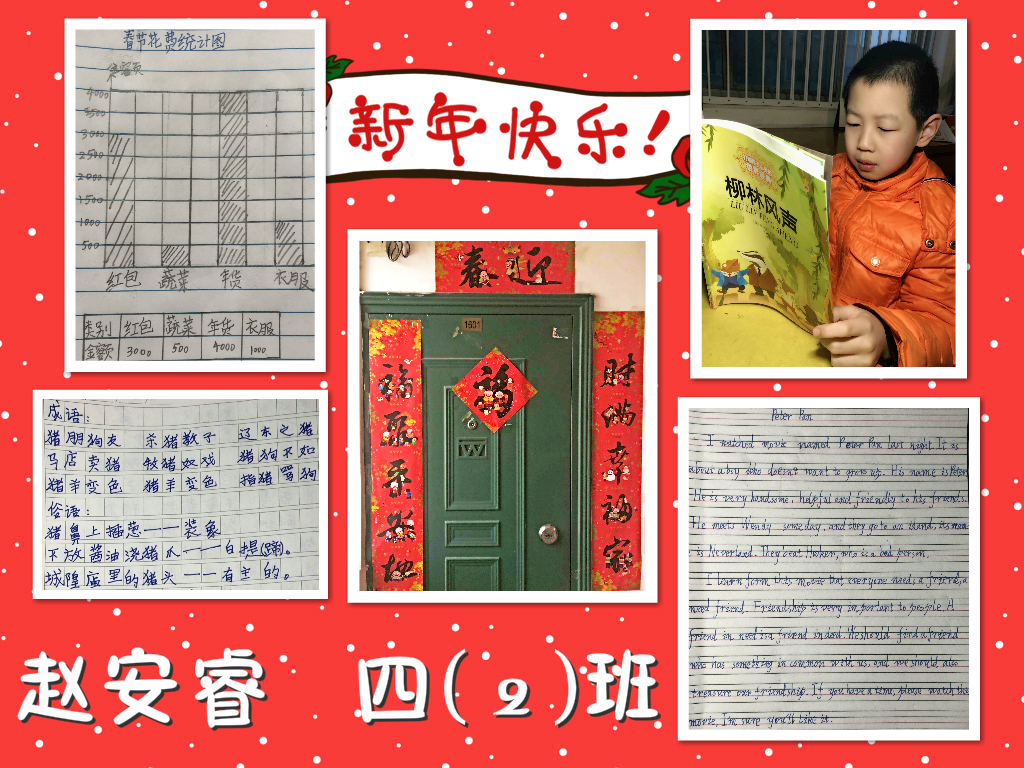 新年快乐!
春节花费统计图
4000
3500
3000
2500
2000
1500
1000
500
红包 蔬菜 年货 衣服
类别 红包 蔬菜 年货 衣服
金额 3000 500 4000 1000
柳林风声
LIU LIN FENG SHENG
春迎
1601
福
财满幸福家
W
成语:
猪朋狗友 杀猪教子 辽东之猪
马店卖猪 牧猪奴戏 猪狗不如
猪羊变色 猪羊变色 指猪骂狗
俗语:
猪鼻上插葱——装象
下放酱油烧猪爪——白提(蹄)。
城隍庙里的猪头——有主的。
Peter Pan
I watched movie named Peter Pan last night. It is
about a boy who doesn't want to grow up. His name is Peter.
He is very handsome, helpful and friendly to his friends.
He meets Wendy someday, and they go to an island, its name
is Neverland. They beat Hooken, who is a bad person.
I learn form this movie that everyone needs a friend, a
need friend. Friendship is very important to people. A
friend in need is a friend indeed. We should find a friend
who has something in common with us, and we should also
treasure our friendship. If you have a time, please watch the
movie, I'm sure you'll like it.
赵安睿 四(2)班